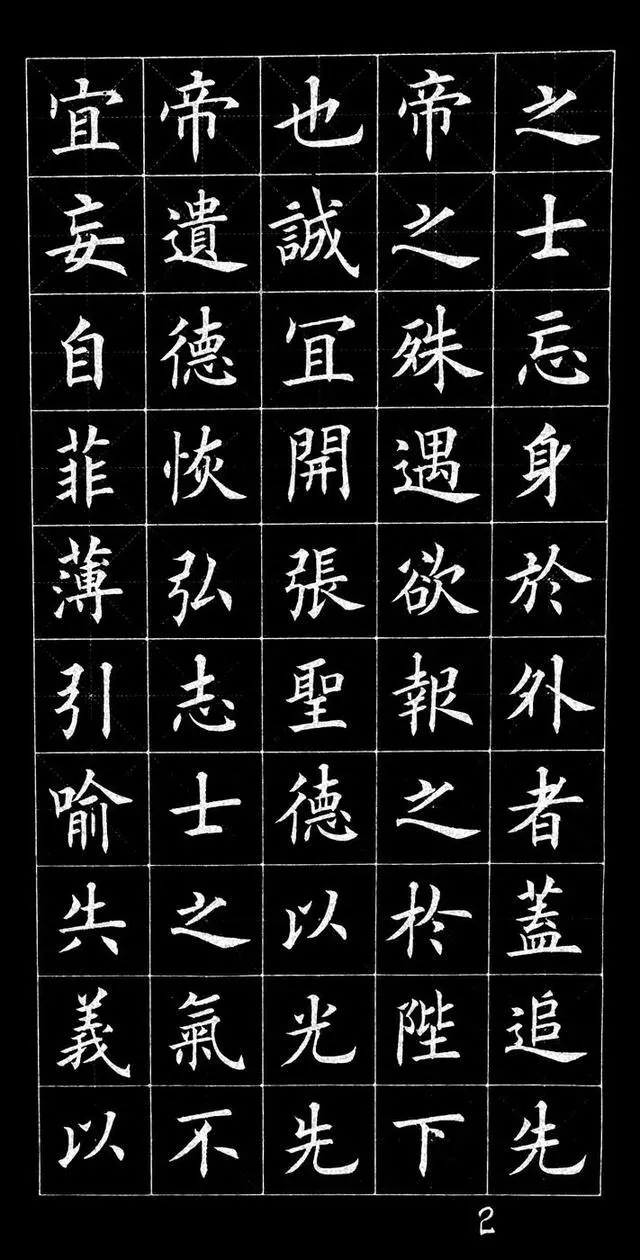 之士忘身於外者蓋追先
帝之殊遇欲報之於陛下
也誠宜開張聖德以光先
帝遺德恢弘志士之氣不
宜妄自菲薄引喻失義以
2